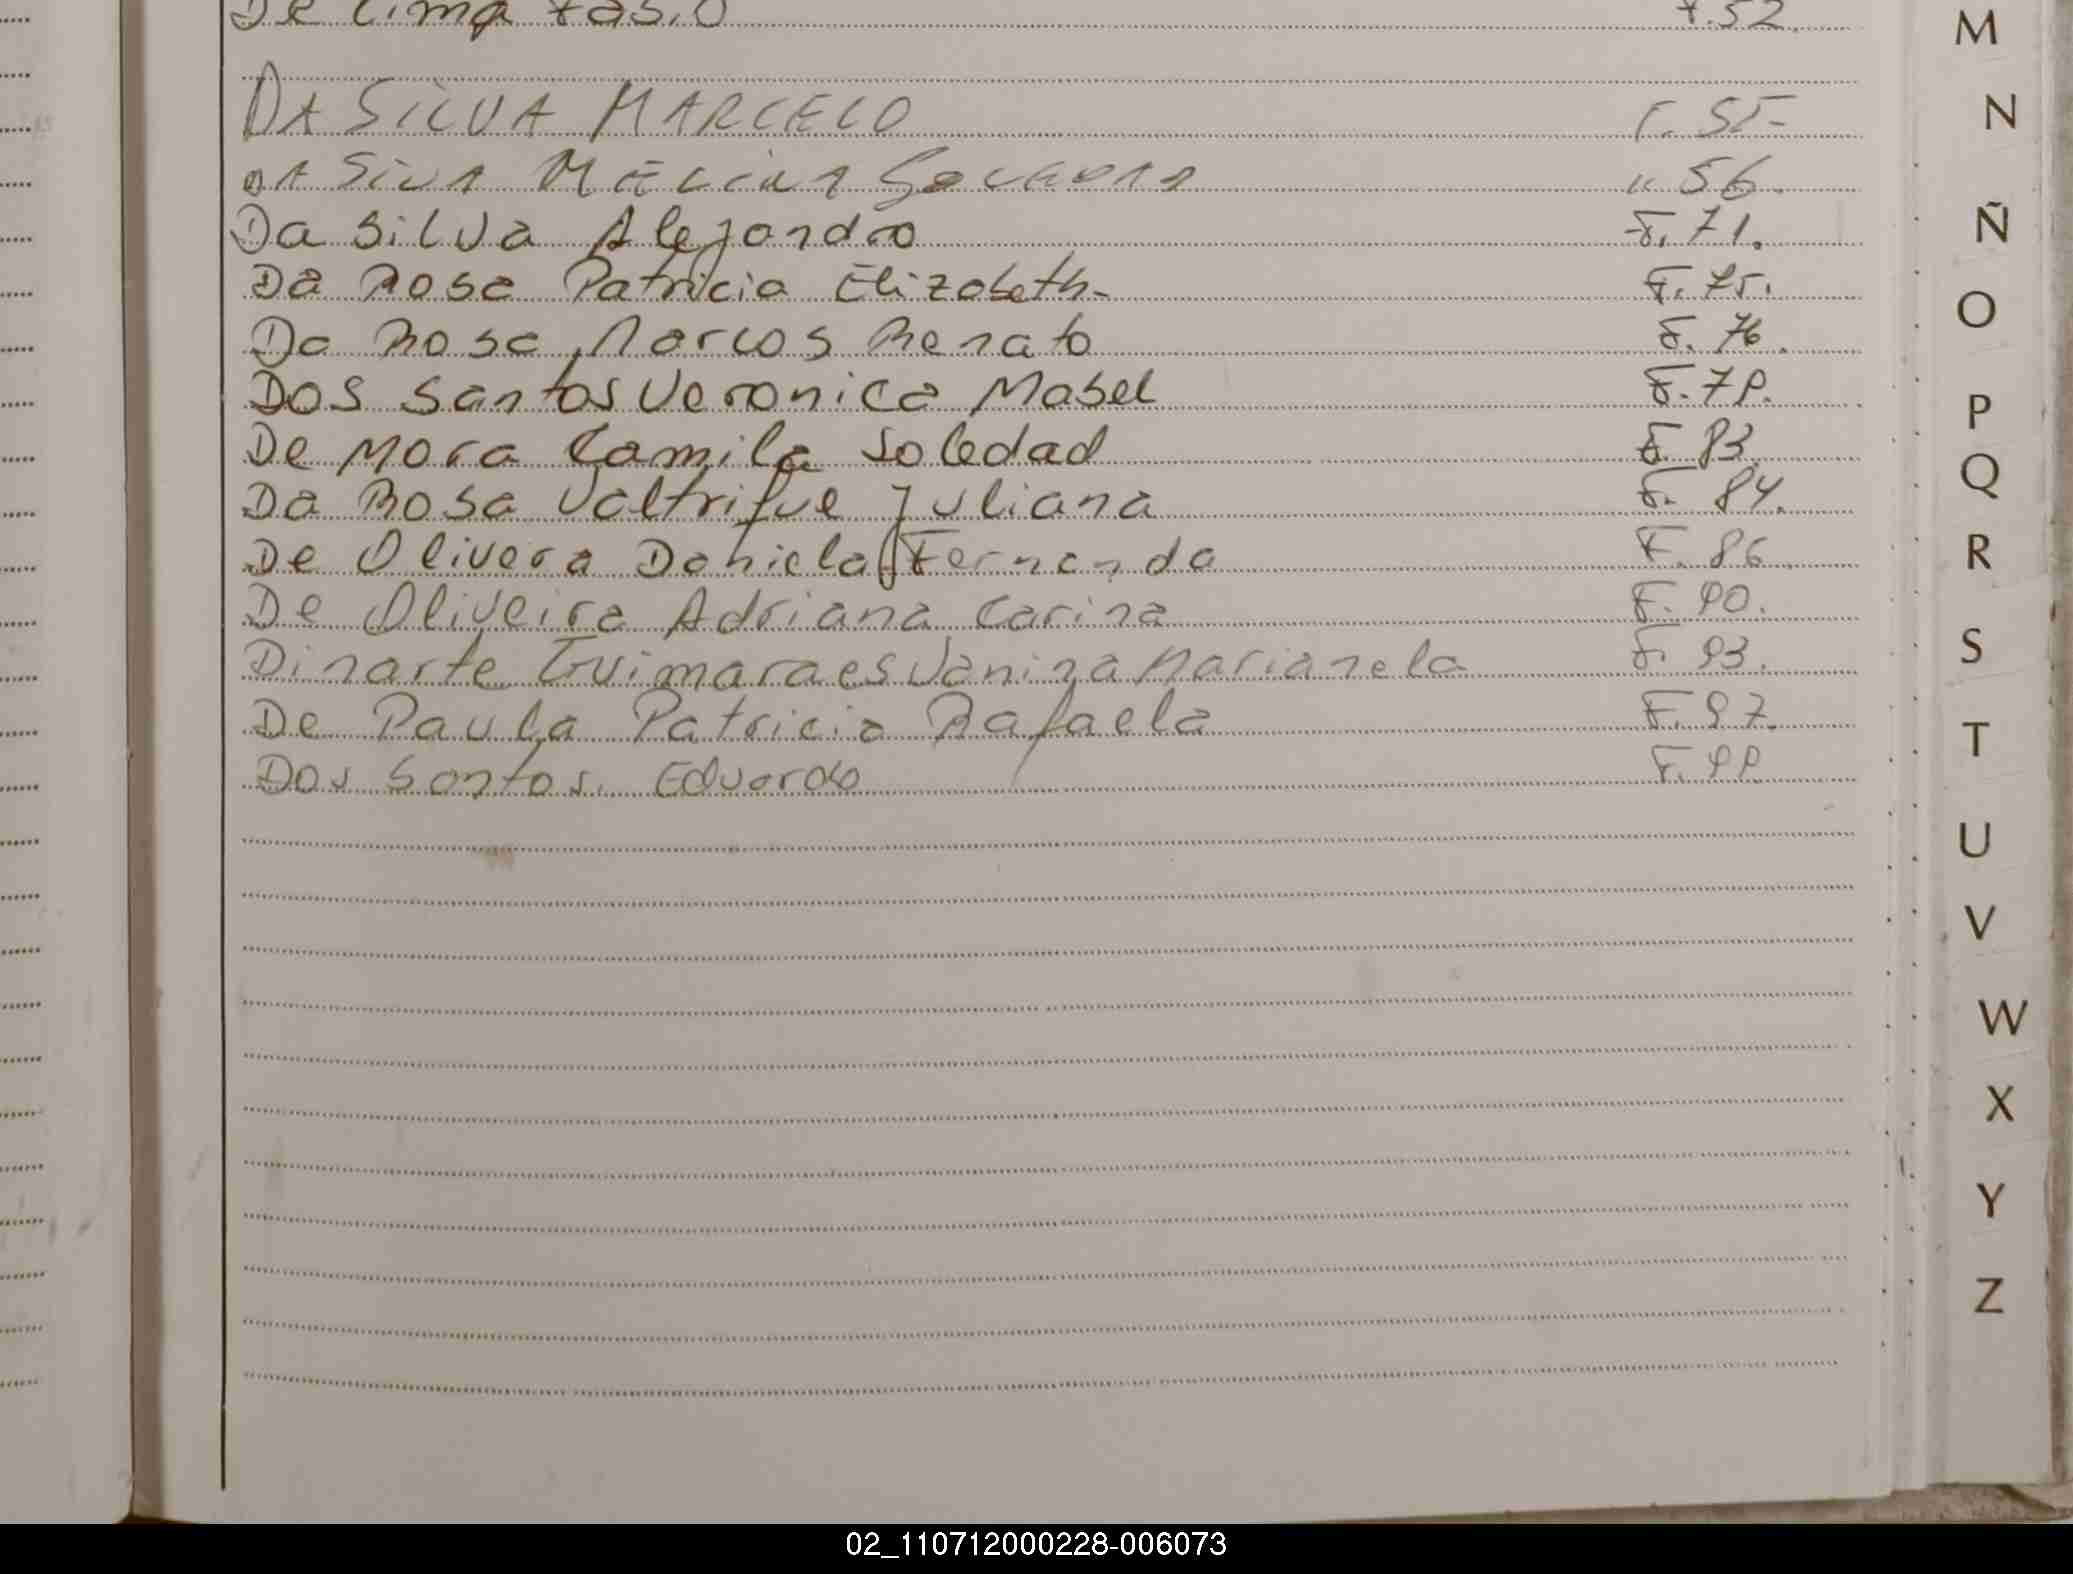 De Lima Fabio F. 52.
DA SILVA MARCELO F. 55-
DA Silva MELINA " 56.
Da Silva Alejandro F. 71.
Da Rosa Patricia Elizabeth- F. 75.
Da Rosa Marcos Renato F. 76.
Dos Santos Veronica Mabel F. 78.
De Mora Camila Soledad F 83.
Da Rosa Valtrique Juliana F. 84.
De Olivera Daniela Fernanda F. 86
De Oliveira Adriana Carina F. 90.
Dinarte Guimaraes Janina Marianela F. 93.
De Paula Patricia Rafaela F. 97.
Dos Santos. Eduardo F. 98
M
N
Ñ
O
P
Q
R
S
T
U
V
W
X
Y
Z
02_110712000228-006073